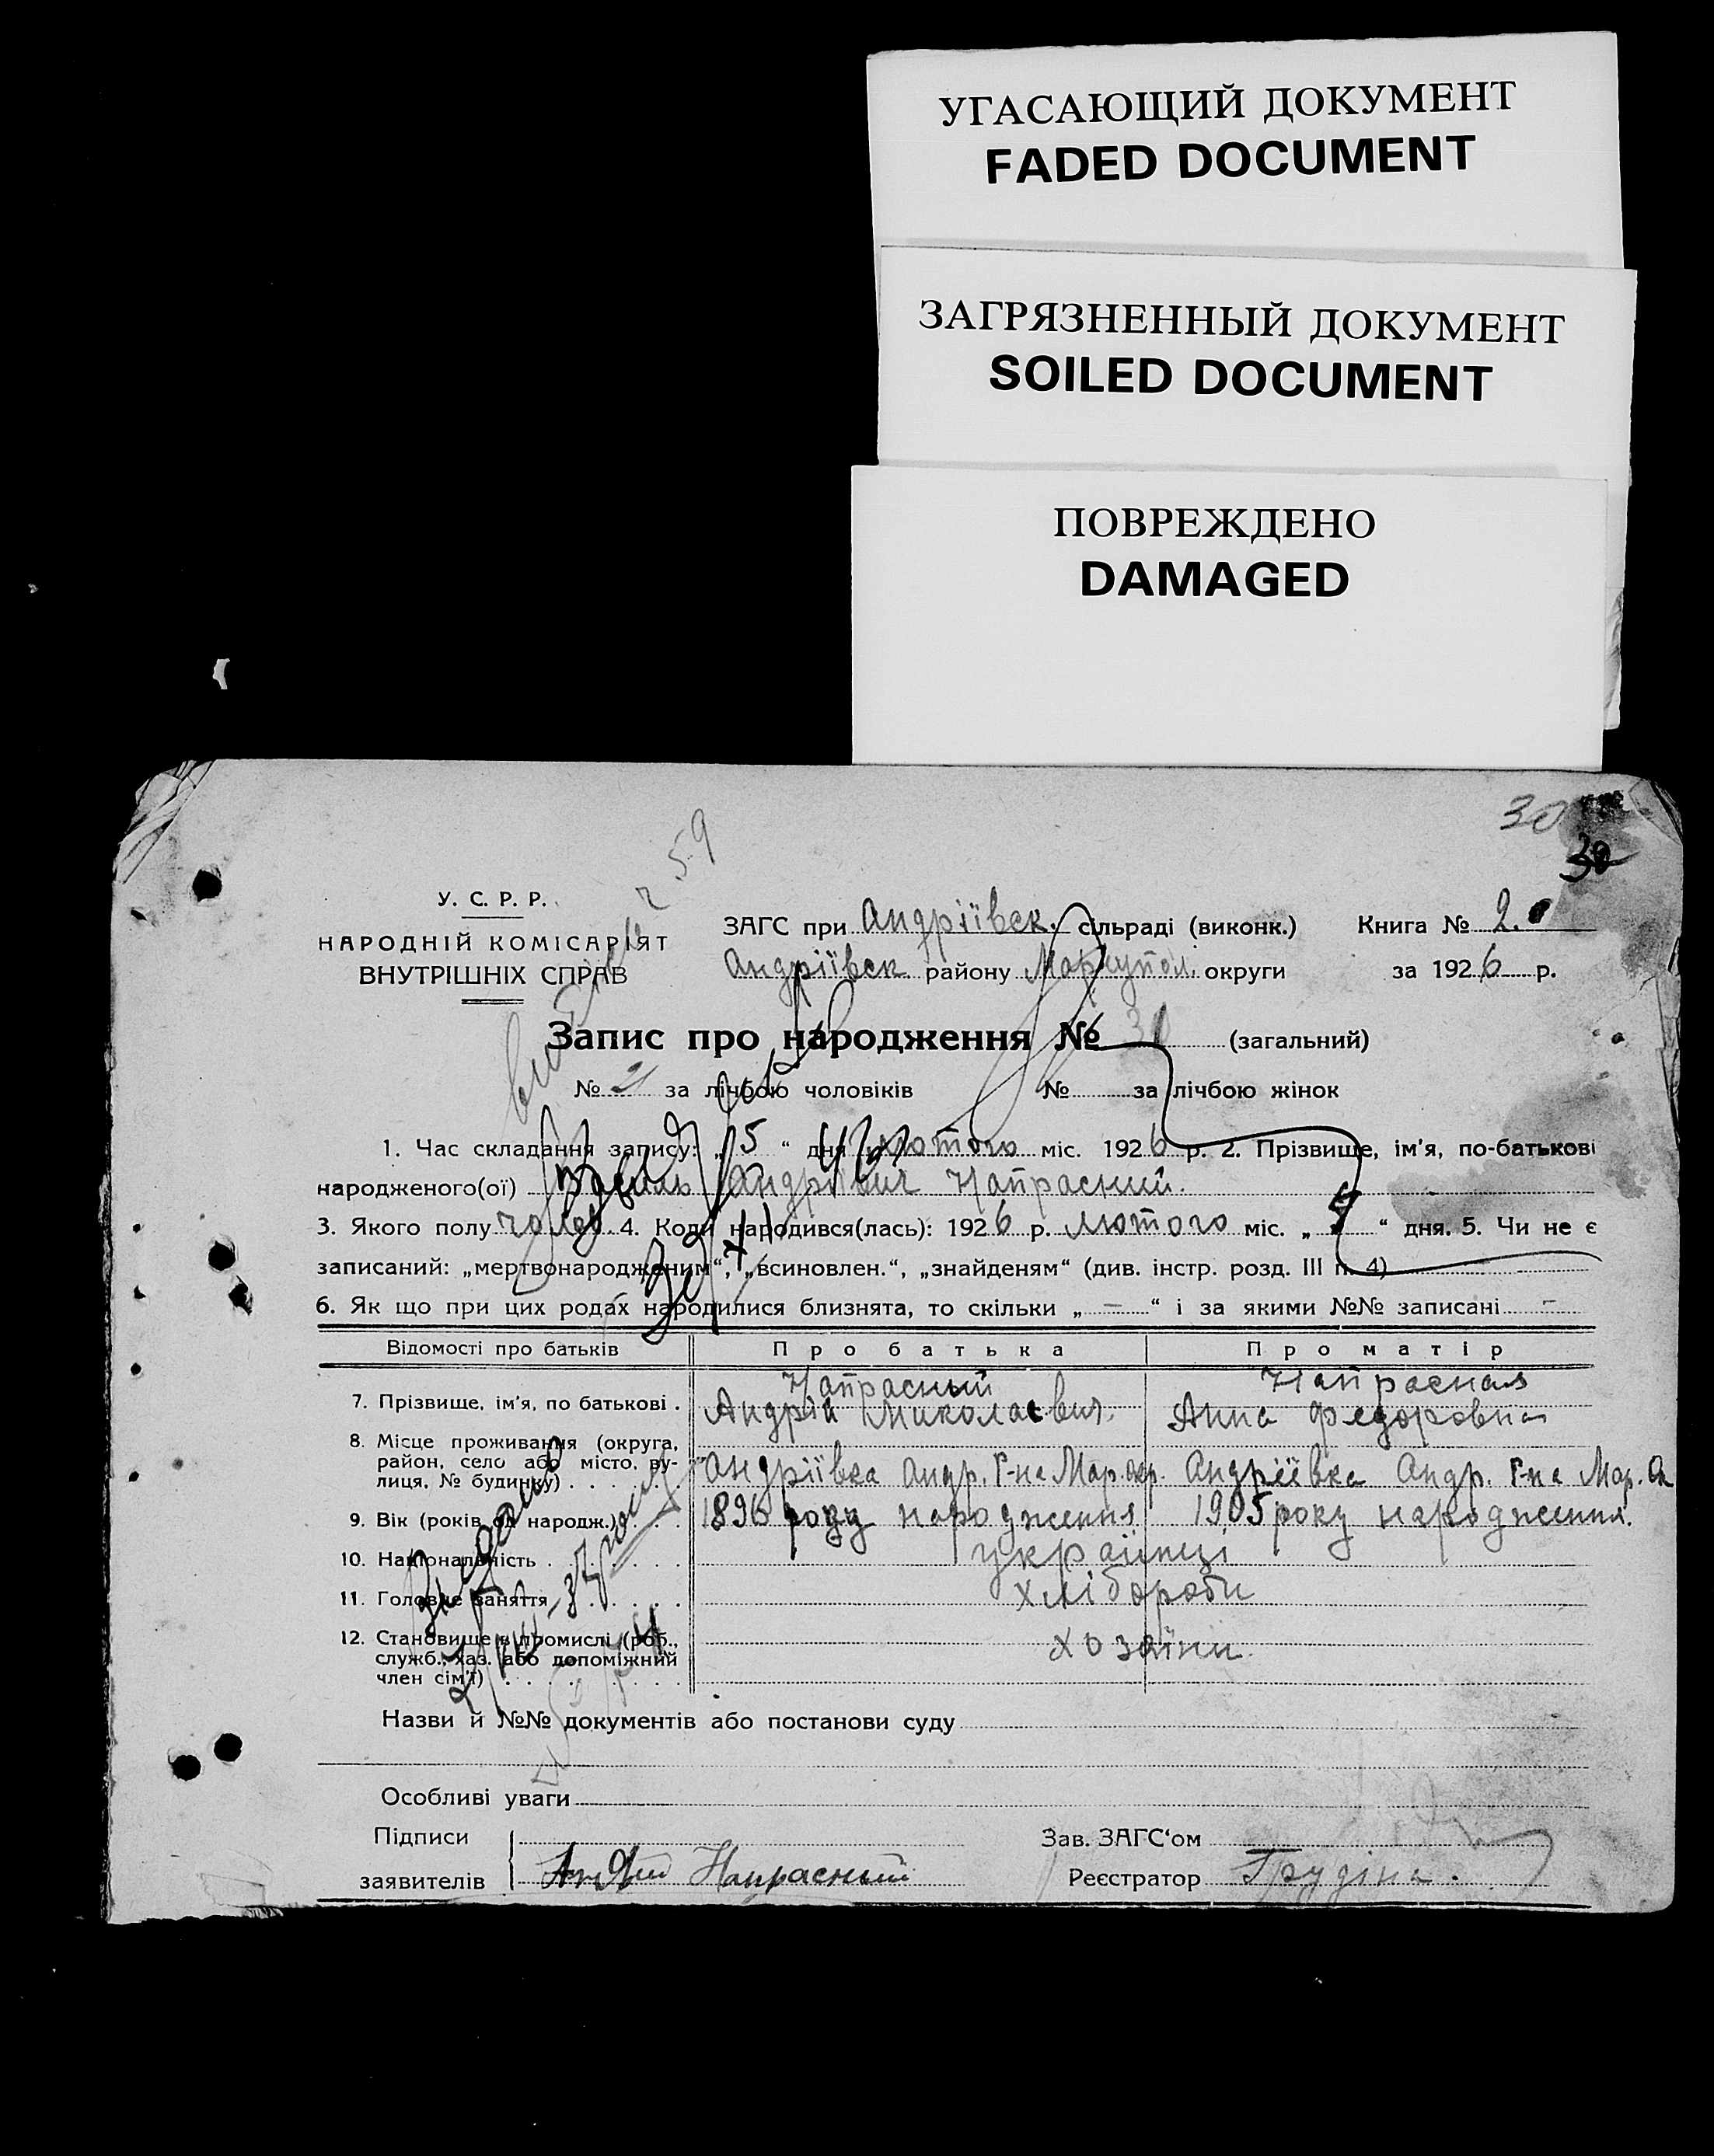 УГАСАЮЩИЙ ДОКУМЕНТ
FADED DOCUMENT
ЗАГРЯЗНЕННЫЙ ДОКУМЕНТ
SOILED DOCUMENT
ПОВРЕЖДЕНО
DAMAGED
30
30
59
У. С. Р. Р.
НАРОДНІЙ КОМІСАРІЯТ
ВНУТРІШНІХ СПРАВ
ЗАГС при Андріївск. сільраді (виконк.) Книга № 2.
Андріївск району Маріупол. округи за 1926 р.
Запис про народження № 30 (загальний)
№ за лічбою чоловіків № за лічбою жінок
1. Час складання запису: „ 5 “ дня лютого міс. 1926 р. 2. Прізвище, ім’я, по-батькові
народженого(ої) Василь Андрієвич Напрасний.
3. Якого полу чолов. 4. Коли народився(лась): 1926 р. лютого міс. „ 4 “ дня. 5. Чи не є
записаний: „мертвонародженим“, „всиновлен.“, „знайденям“ (див. інстр. розд. III п. 4)
6. Як що при цих родах народилися близнята, то скільки „ — “ і за якими №№ записані —
Відомості про батьків Про батька Про матір
7. Прізвище, ім’я, по батькові . Напрасный Андрій Миколаевич. Напрасная Анна Федоровна
8. Місце проживання (округа,
район, село або місто, ву-
лиця, № будинку) . . . . Андріївка Андр. Р-на Мар. окр. Андріївка Андр. Р-на Мар. Ок
9. Вік (років од народж.) . . . 1896 року народження 1905 року народження.
10. Національність . . . . . . українці
11. Головне заняття . . . . . хлібороби
12. Становище в промислі (роб.,
служб., хаз. або допоміжний
член сім’ї) . . . . . . . . хозаїни.
Назви й №№ документів або постанови суду
Особливі уваги
Підписи
заявителів Напрасный
Зав. ЗАГС‘ом
Реєстратор Грудіна.